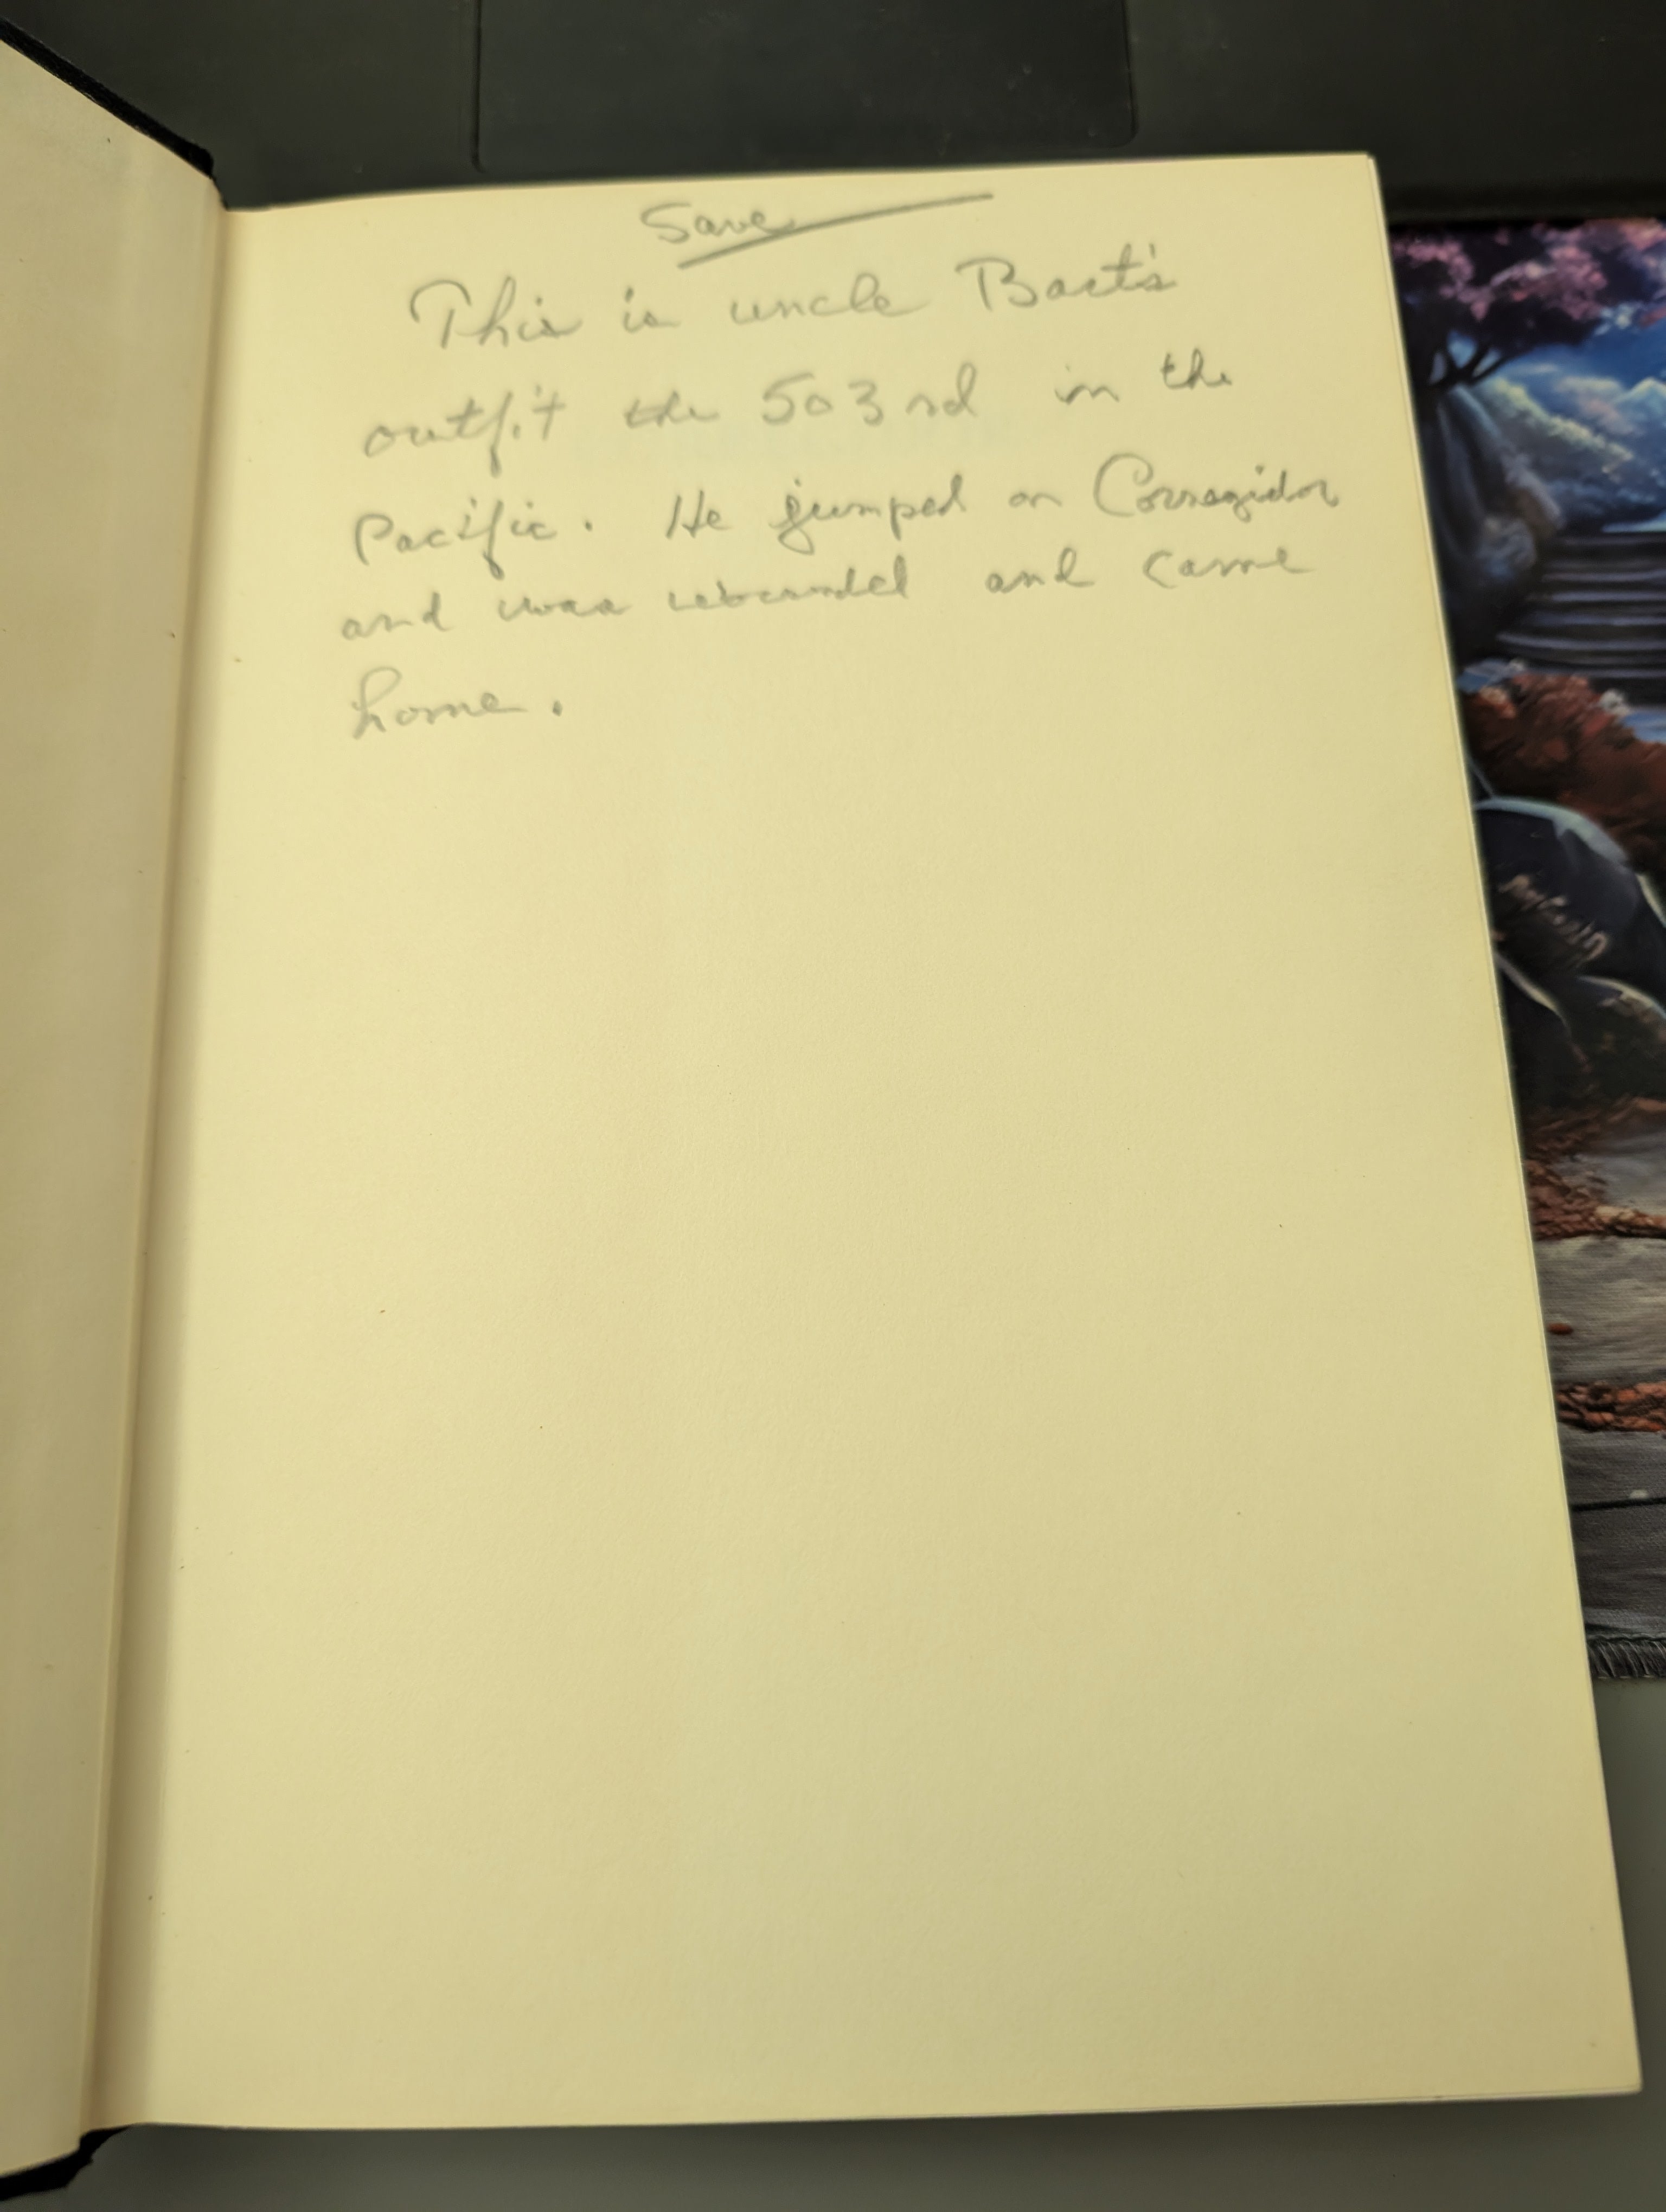 Save
This is uncle Bart's
outfit the 503rd in the
Pacific. He jumped on Corregidor
and was and came
home.